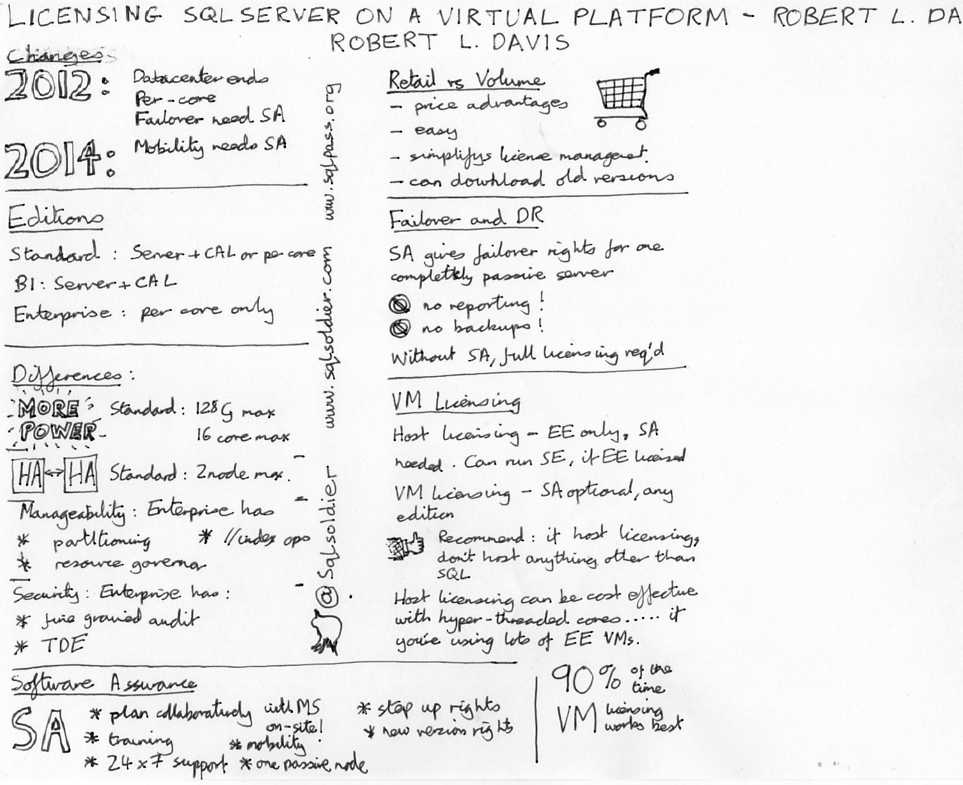 LICENSING SQL SERVER ON A VIRTUAL PLATFORM - ROBERT L. DA
ROBERT L. DAVIS
Changes
2012:
Datacenter ends
Per-core
Failover need SA
2014:
Mobility needs SA
Editions
Standard : Server + CAL or per core
BI: Server + CAL
Enterprise : per core only
Differences:
MORE
POWER
Standard : 128G max
16 core max
HA HA Standard : 2 node max.
Manageability : Enterprise has
* partitioning * //index ops
* resource governor
Security : Enterprise has :
* fine grained audit
* TDE
@Sqlsoldier www.sqlsoldier.com www.sqlpass.org
Retail vs Volume
- price advantages
- easy
- simplifys license managemet.
- can download old versions
Failover and DR
SA gives failover rights for one
completely passive server
no reporting!
no backups!
Without SA, full licensing req'd
VM Licensing
Host licensing - EE only, SA
needed. Can run SE, if EE licensed
VM licensing - SA optional, any
edition
Recommend : if host licensing,
don't host anything other than
SQL
Host licensing can be cost effective
with hyper-threaded cores..... if
you're using lots of EE VMs.
Software Assurance
SA
* plan collaboratively with MS
on-site!
* step up rights
* training
* mobility
* new version rights
* 24 x 7 support * one passive node
90% of the
time
VM licensing
works best